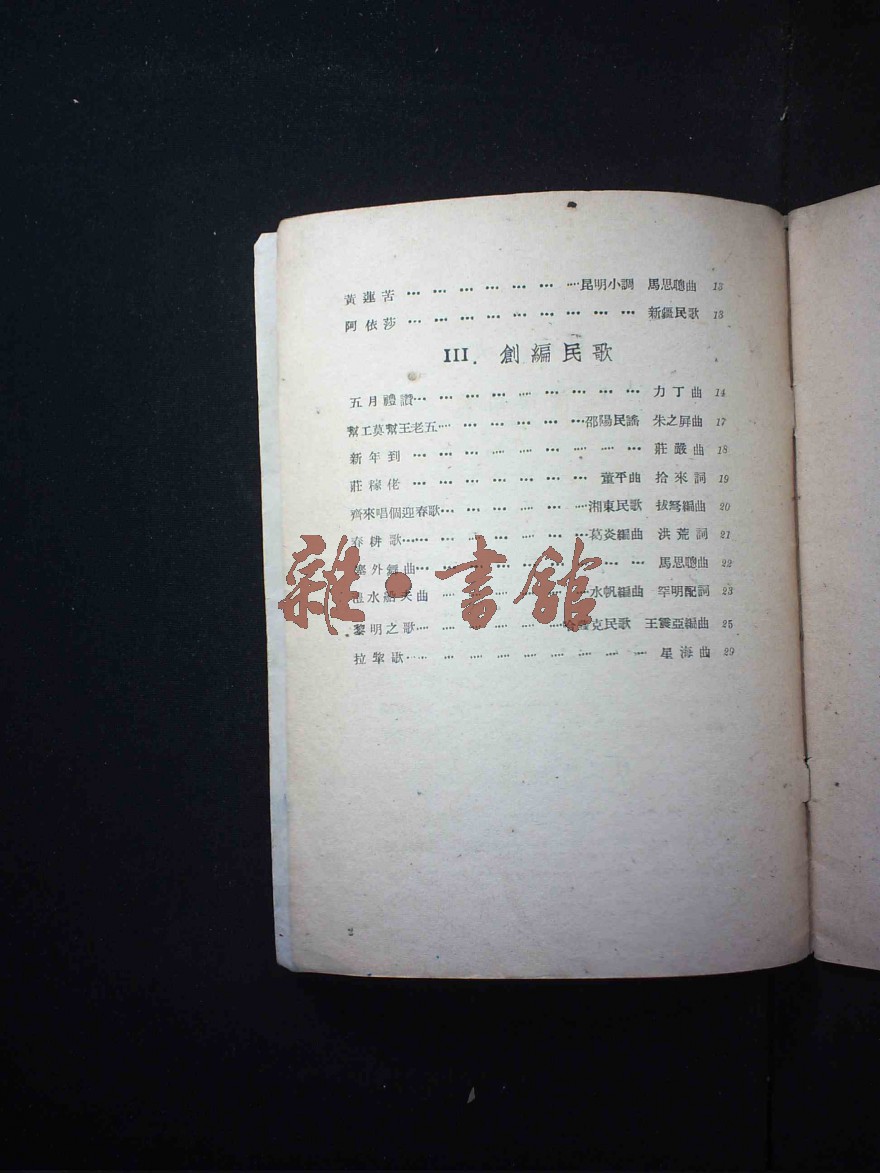 黃蓮苦 … … … … … … … …昆明小調 馬思聰曲 13
阿依莎 … … … … … … … … … … 新疆民歌 13
III. 創編民歌
五月禮讚… … … … … … … … … 力丁曲 14
幫工莫幫王老五… … … … … … …邵陽民謠 朱之屛曲 17
新年到 … … … … … … … … … … 莊嚴曲 18
莊稼佬 … … … … … … … … 董平曲 拾來詞 19
齊來唱個迎春歌… … … … … … …湘東民歌 拔弩編曲 20
春耕歌… … … … … … … …葛炎編曲 洪荒詞 21
塞外舞曲… … … … … … … … … 馬思聰曲 22
水船夫曲 … … … … … … …水帆編曲 罕明配詞 23
黎明之歌… … … … … … …克民歌 王震亞編曲 25
拉犂歌… … … … … … … … … 星海曲 29
2
雜·書館